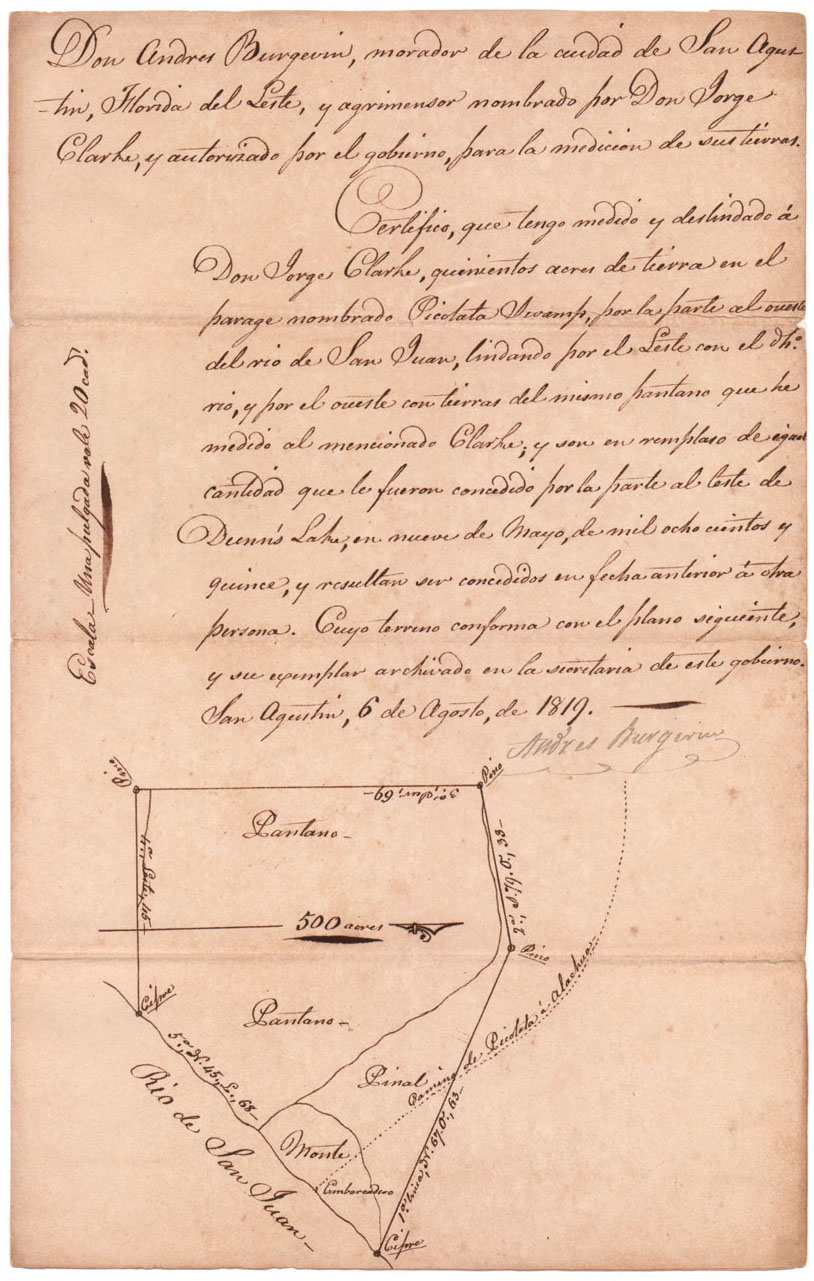 Don Andres Burgevin, morador de la ciudad de San Agus-
-tin, Florida del Leste, y agrimensor nombrado por Don Jorge
Clarke, y autorizado por el gobierno, para la medicion de sus tierras.
Certifico, que tengo medido y deslindado á
Don Jorge Clarke, quinientos acres de tierra en el
parage nombrado Picolata Swamp, por la parte al oueste
del rio de San Juan, lindando por el Leste con el dho.
rio, y por el oueste con tierras del mismo pantano que he
medido al mencionado Clarke; y son en remplaso de igual
cantidad que le fueron concedido por la parte al leste de
Dunn's Lake, en nueve de Mayo, de mil ocho cientos y
quince, y resultan ser concedidos en fecha anterior á otra
persona. Cuyo terreno conforma con el plano siguiente,
y su exemplar archivado en la secretaria de este gobierno.
San Agustin, 6 de Agosto, de 1819.
Andres Burgevin
Escala - Una pulgada vale 20 cad.
Pino
3a, Sur, 69-
Pino
Pantano-
4a, Leste, 45-
2a, S. 79. O, 33-
500 acres
Pino
Cipre
Pantano-
5a, N. 45, L., 68-
Camino de Picolata á Alachua
Pinal
Rio de San Juan-
Monte
Embarcadero
1a linea, N. 67. O, 63-
Cipre